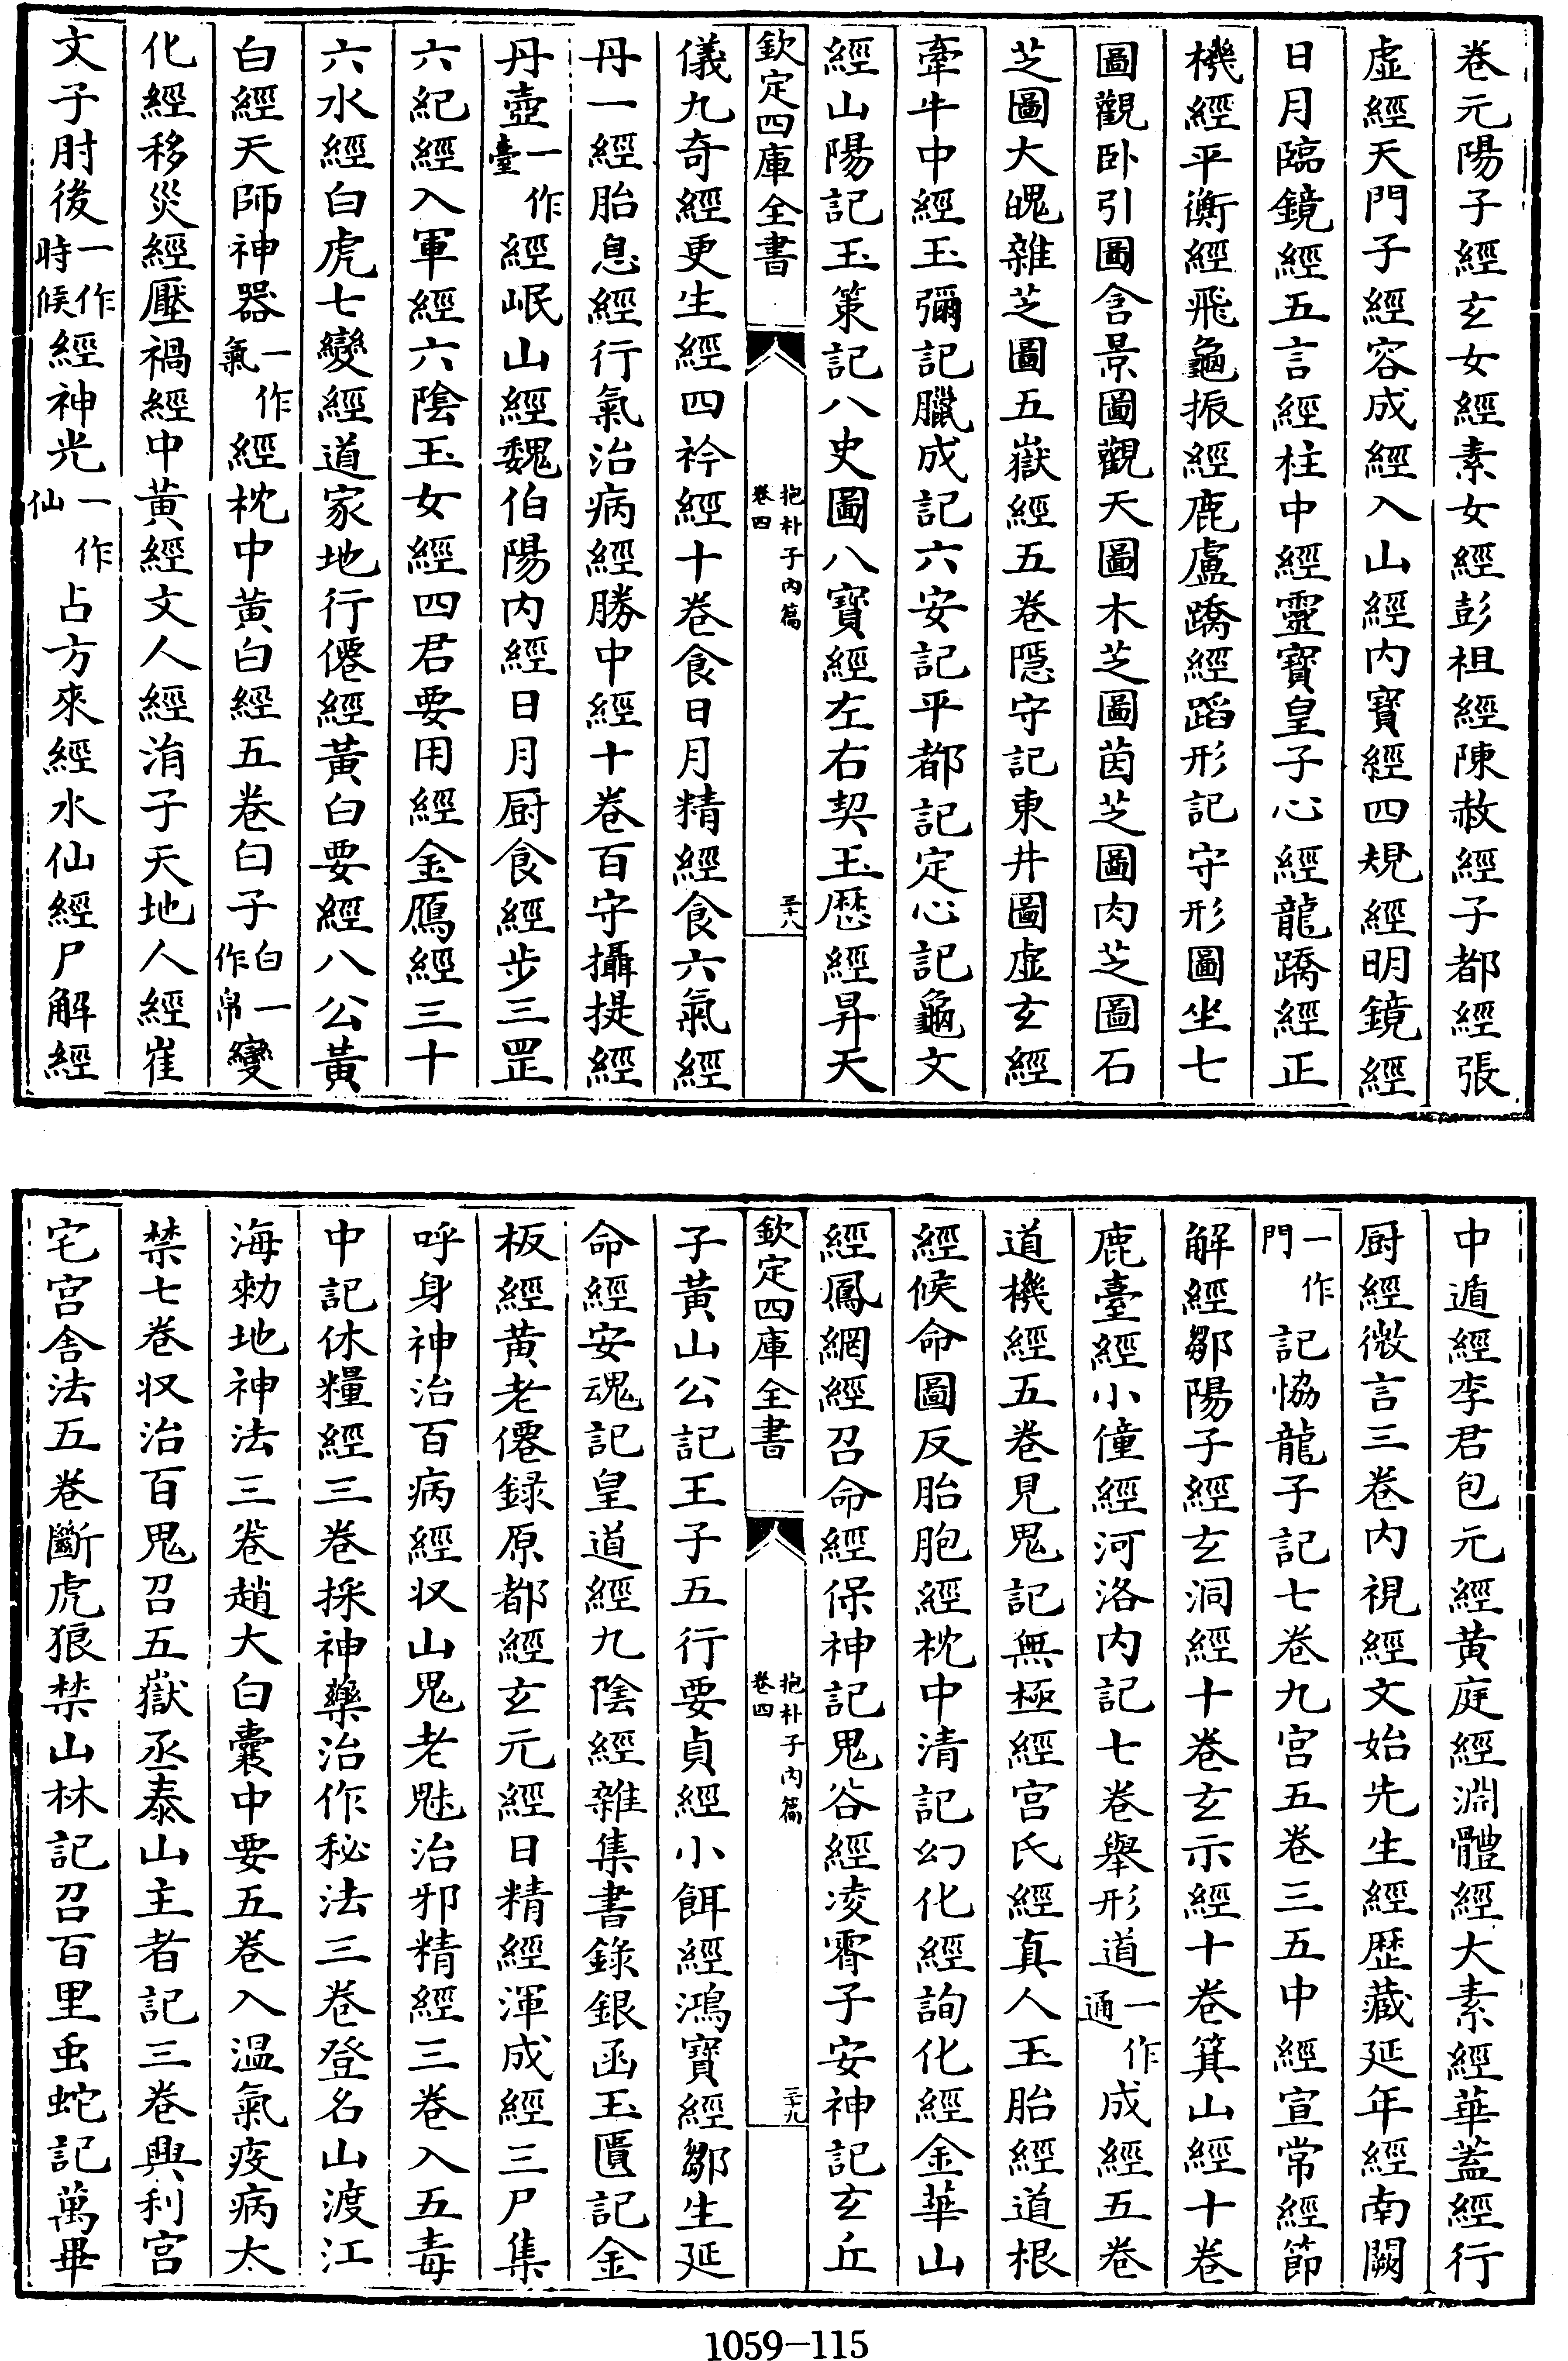 卷元陽子經玄女經素女經彭祖經陳赦經子都經張
虛經天門子經容成經入山經内寶經四規經明鏡經
日月臨鏡經五言經柱中經靈寶皇子心經龍蹻經正
機經平衡經飛龜振經鹿盧蹻經蹈形記守形圖坐七
圖觀卧引圖含景圖觀天圖木芝圖茵芝圖肉芝圖石
芝圖大魄雜芝圖五嶽經五卷隱守記東井圖虛玄經
牽牛中經玉彌記臘成記六安記平都記定心記龜文
經山陽記玉策記八史圖八寶經左右契玉厯經昇天
欽定四庫全書 抱朴子内篇 卷四 三十八
儀九奇經更生經四衿經十卷食日月精經食六氣經
丹一經胎息經行氣治病經勝中經十卷百守攝提經
丹壺一作臺經岷山經魏伯陽内經日月厨食經步三罡
六紀經入軍經六陰玉女經四君要用經金鴈經三十
六水經白虎七變經道家地行僊經黃白要經八公黃
白經天師神器一作氣經枕中黃白經五卷白子白一作帛變
化經移災經壓禍經中黃經文人經涓子天地人經崔
文子肘後一作時候經神光一作仙占方來經水仙經尸解經
中遁經李君包元經黄庭經淵體經大素經華蓋經行
厨經微言三卷内視經文始先生經歴藏延年經南闕
一作門記恊龍子記七卷九宫五卷三五中經宣常經節
解經鄒陽子經玄洞經十卷玄示經十卷箕山經十卷
鹿臺經小僮經河洛内記七卷舉形道一作通成經五卷
道機經五卷見鬼記無極經宫氏經真人玉胎經道根
經候命圖反胎胞經枕中清記幻化經詢化經金華山
經鳳網經召命經保神記鬼谷經凌霄子安神記玄丘
欽定四庫全書 抱朴子内篇 卷四 三十九
子黃山公記王子五行要貞經小餌經鴻寶經鄒生延
命經安魂記皇道經九陰經雜集書錄銀函玉匱記金
板經黄老僊録原都經玄元經日精經渾成經三尸集
呼身神治百病經収山鬼老魅治邪精經三卷入五毒
中記休糧經三卷採神藥治作秘法三卷登名山渡江
海勑地神法三卷趙太白囊中要五卷入温氣疫病大
禁七卷収治百鬼召五嶽丞泰山主者記三卷興利宫
宅宫舎法五卷斷虎狼禁山林記召百里虫蛇記萬畢
1059-115